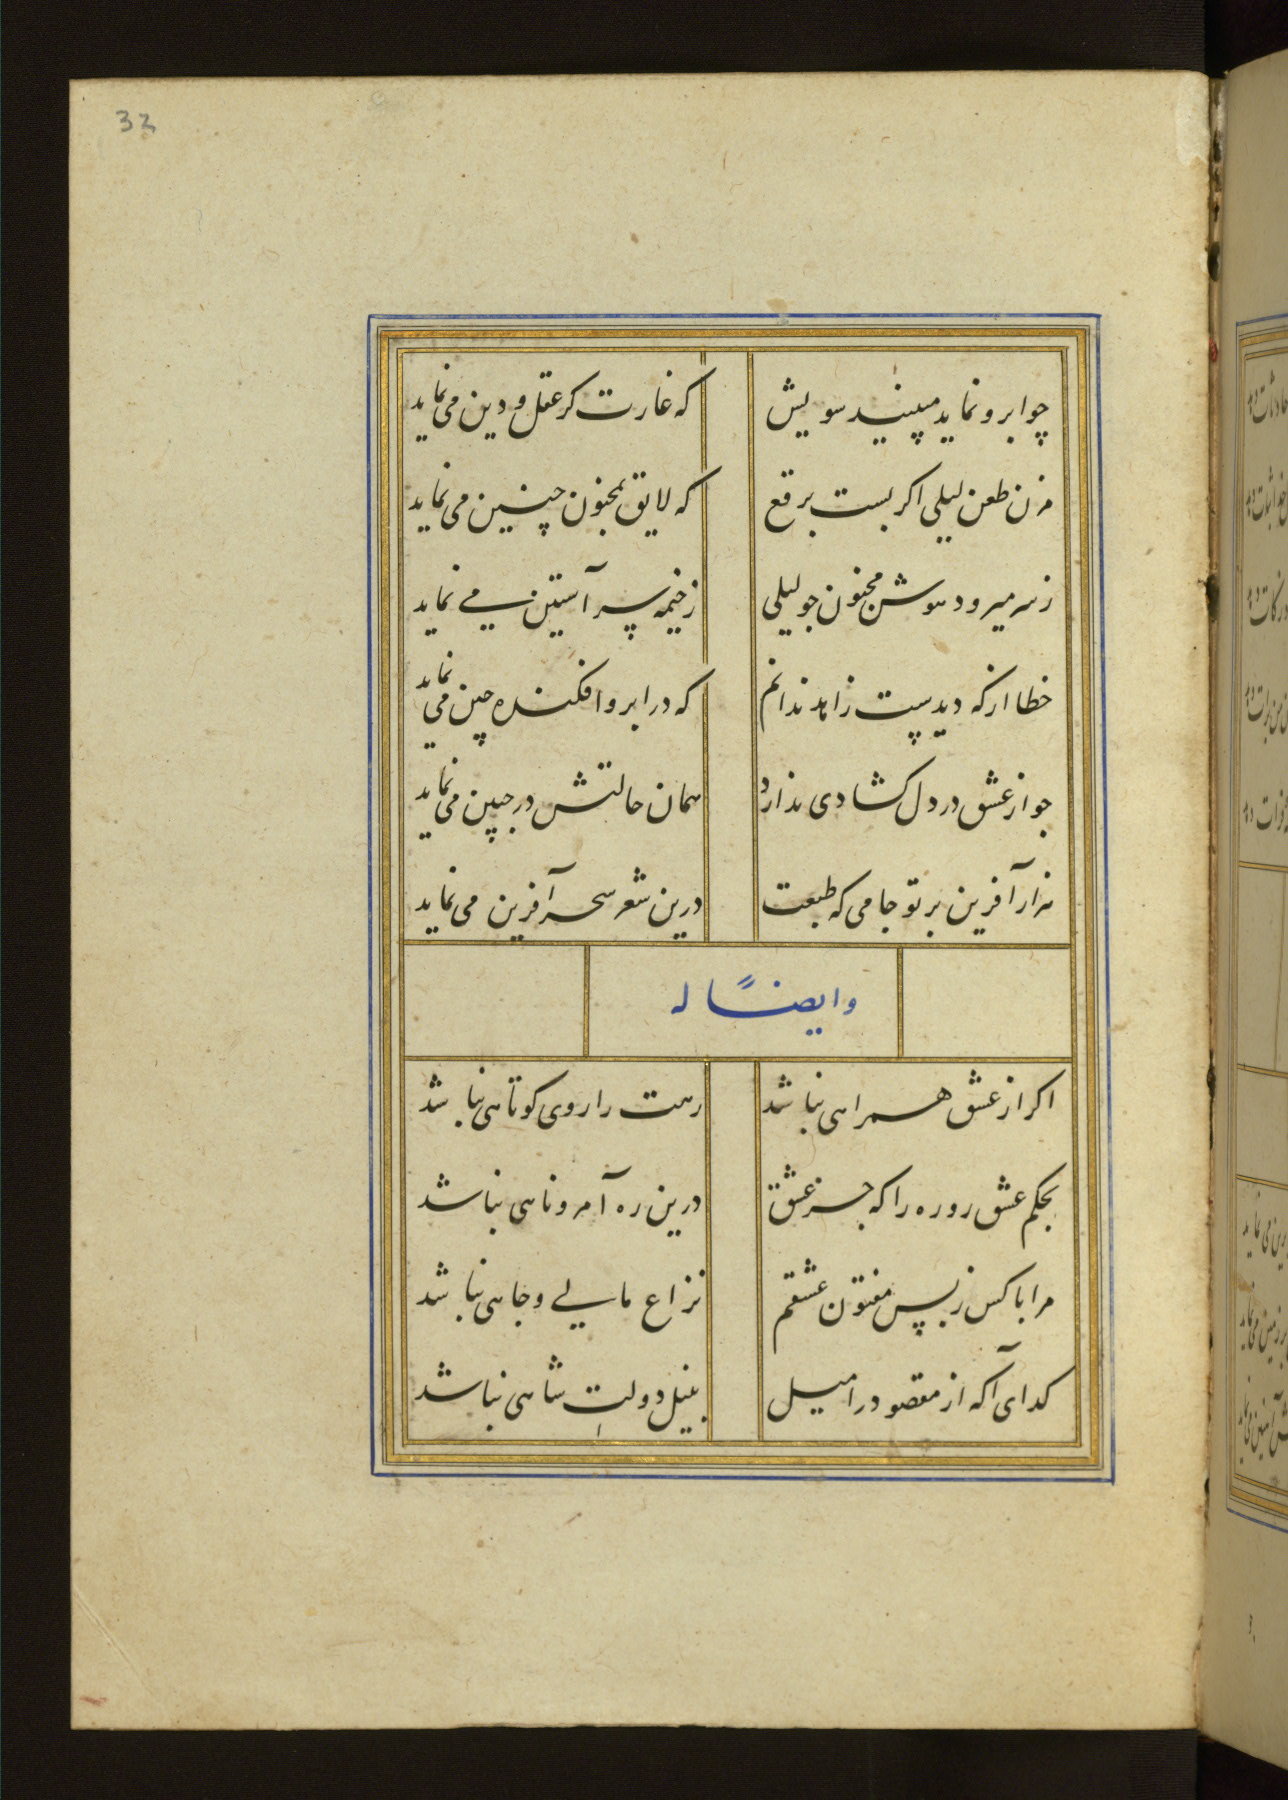 32
چو ابرو نماید مبینید سویش که غارت کر عقل و دین می نماید
مزن طعن لیلی اکر بست برقع که لایق بمجنون چنین می نماید
زسر میرود هوش مجنون چو لیلی زخیمه سر آستین می نماید
خطا از که دیدست زاهد ندانم که در ابرو افکنده چین می نماید
جو از عشق در دل کشادی ندارد همان حالتش در جبین می نماید
هزار آفرین بر تو جامی که طبعت درین شعر سحر آفرین می نماید
وایضاً له
اکر از عشق همراهی نباشد رهت را روی کوتاهی نباشد
بحکم عشق رو ره را که جز عشق درین ره آمر و ناهی نباشد
مرا با کس ز بس مفتون عشقم نزاع مالی و جاهی نباشد
کدای آکه از مقصود را میل بنیل دولت شاهی نباشد